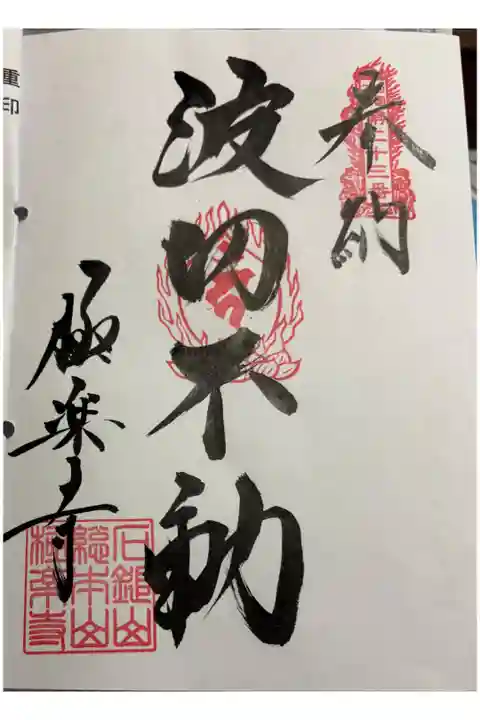 奉納
波切不動
極楽寺
石鎚山
総本山
極楽寺
重印